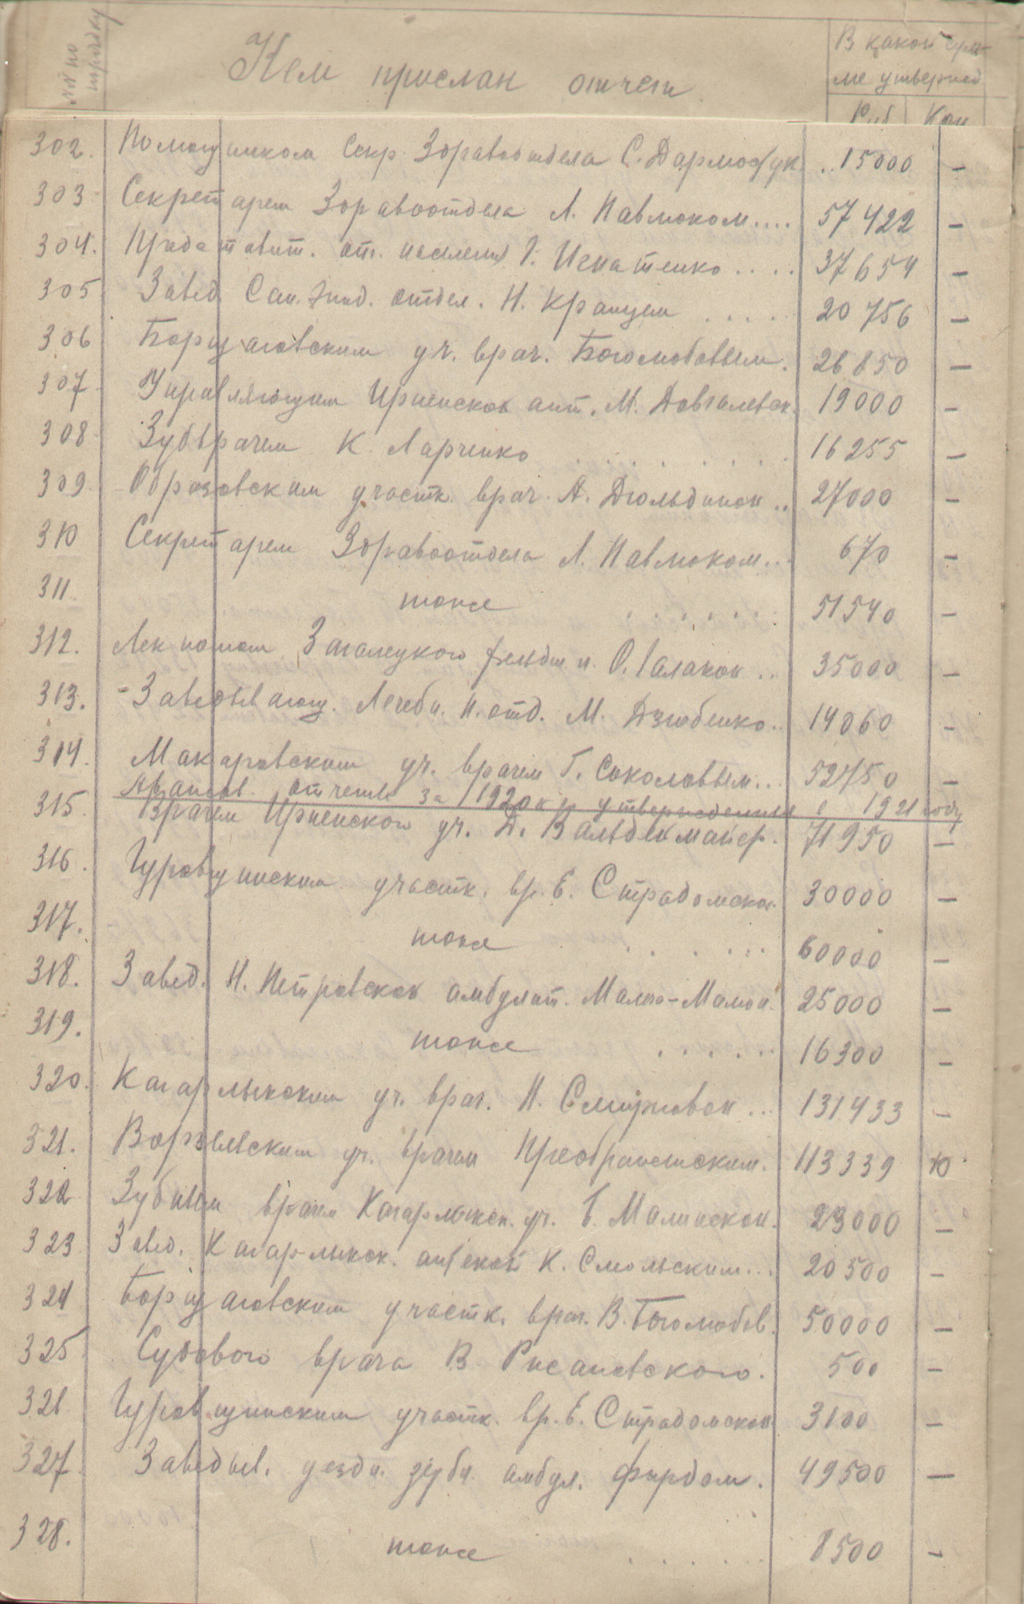 №№ по порядку
Кем прислан отчет
В какой сум-
ме утвержд
Руб Коп
302. Помощником Секр. Здравоотдела С. Дармос . . 15000 –
303 Секретарем Здравоотдела Л. Павлюком.... 57422 –
304. Представит. от. населения Г. Игнатенко .... 37654 –
305 Завед Сан. Эпид. отдел. Н. Кранцем ..... 20756 –
306 Борщаговским уч. врач. Боголюбовым. 26850 –
307 Управляющим Ирпенской апт. М. Довгалевск. 19000 –
308 Зубврачем К. Ларченко ....... 16255 –
309 участк. врач. А. .. 27000 –
310 Секретарем Здравоотдела Л. Павлюком... 670 –
311 тоже ...... 51540 –
312. Лек помом Загалецкого фельдш п. О. Галакон .. 35000 –
313. - Заведывающ. Лечебн. п.отд. М. Дзюбенко.. 14060 –
314 Макаровским уч. врачем Г. Соколовым... 52750 –
Авансов. отчеты за 1920 г утвержденные в 1921 году
315 Врачем Ирпенского уч. Д. Вальденмайер. 71950 –
316 Гуровщинским участк. вр. Е. Страдомской. 30000 –
317. тоже ...... 60000 –
318. Завед. Н. Петровской амбулат. Мало-Момон. 25000 –
319. тоже ...... 16300 –
320. Кагарлыкским уч. врач. Н. Смирновой ... 131433 –
321. Ворзельским уч. врачем Преображенским. 113339 10
322 Зубным врачем Кагарлыкск. уч. Б. Малинской. 23000 –
323 Завед. Кагарлыкск. аптекой К. Смольским... 20500 –
324 Борщаговским участк. врач. В. Боголюбов. 50000 –
325 Судового врача В. . 500 –
326 Гуровщинским участк. вр. Е. Страдомской 3100 –
327 Заведыв. уездн. зубн. амбул. Фирдом. 49500 –
328. тоже ...... 8500 –